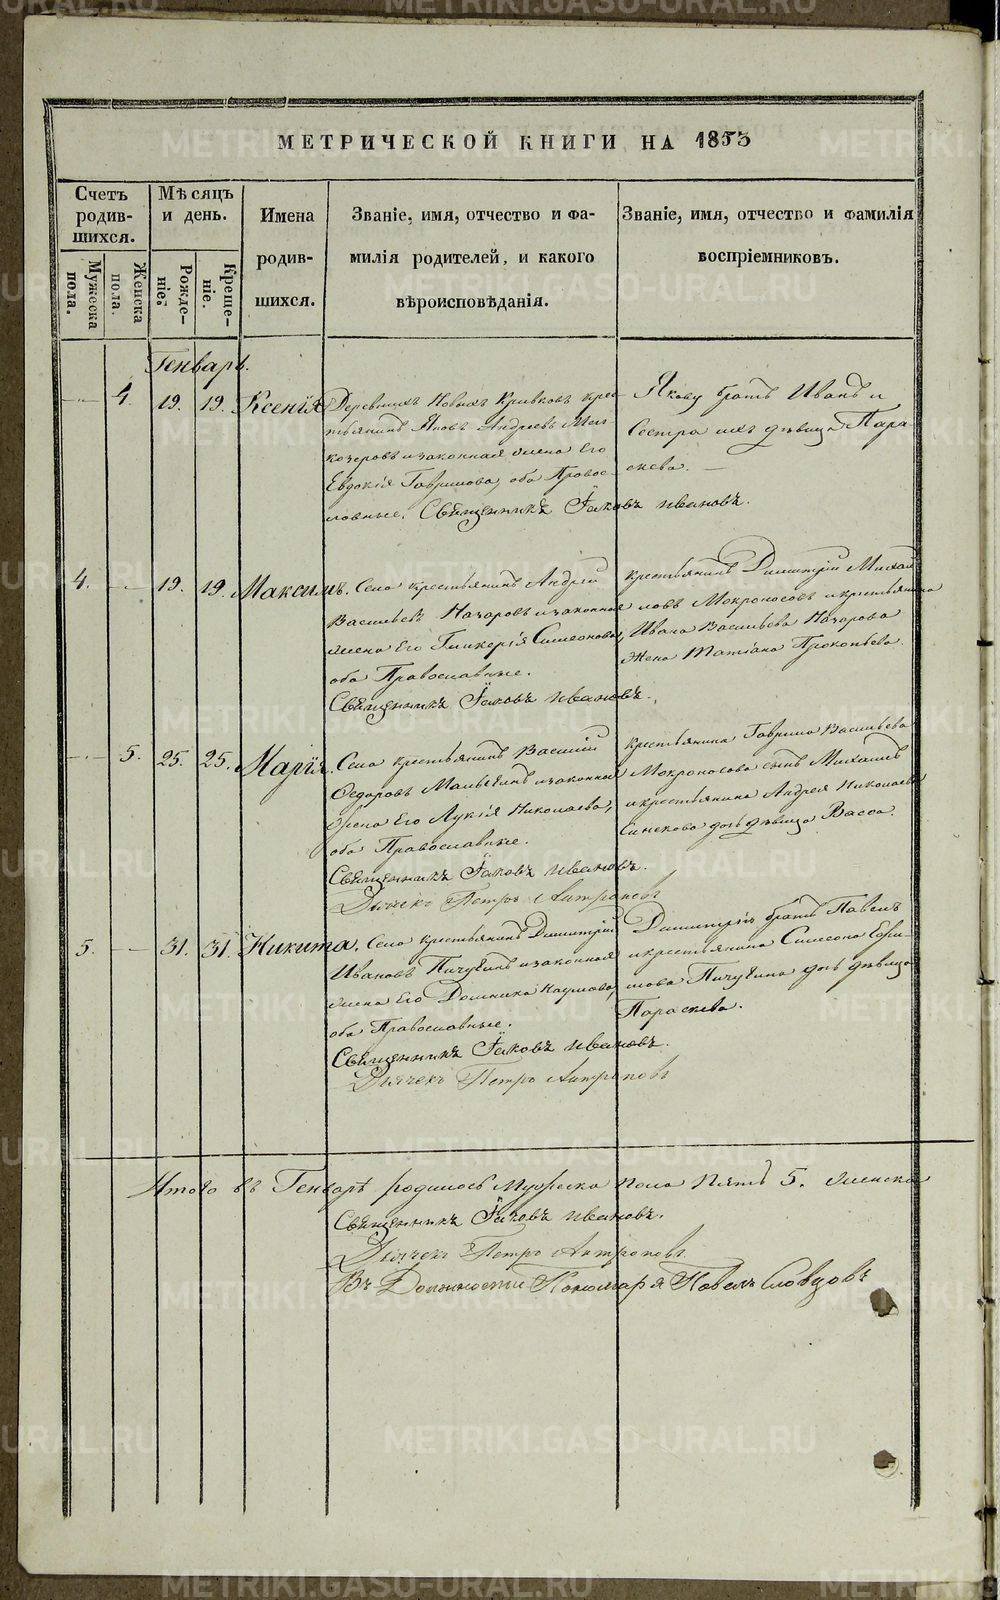 МЕТРИЧЕСКОЙ КНИГИ НА 1853
Счетъ родив- шихся.
Мѣсяцъ и день.
Имена родив- шихся.
Званіе, имя, отчество и фа-
милія родителей, и какого
вѣроисповѣданія.
Званіе, имя, отчество и фамилія
воспріемниковъ.
Мужеска пола.
Женска пола.
Рожде- ніе.
Креще- ніе.
Генварь.
4. 19. 19. Ксенія
Деревни Новыхъ Кривковъ крес-
тьянинъ Яковъ Андреевъ
и законная жена Его
Евдокія Гаврилова, оба Правос-
лавные. Священникъ Іаковъ Ивановъ.
Якову братъ Иванъ и
Сестра ихъ дѣвица Пара-
скева.
4. 19. 19. Максимъ.
Села крестьянинъ Андрей
Васильевъ Назаровъ и законная
жена Его Гликерія Симеонова,
оба Православные.
Священникъ Іаковъ Ивановъ.
крестьянинъ Димитрій Михай-
ловъ Мокроносовъ и крестьянина
Ивана Васильева Назарова
Жена Татіана Прокопьева.
5. 25. 25. Марія.
Села крестьянинъ Василій
Федоровъ и законная
жена Его Лукія Николаева,
оба Православные.
Священникъ Іаковъ Ивановъ.
Дьячекъ Петръ Антроповъ
крестьянина Гаврила Васильева
Мокроносова сынъ Михаилъ
и крестьянина Андрея Николаева
дочь дѣвица Васса.
5. 31. 31. Никита.
Села крестьянинъ Димитрій
Ивановъ Пичугинъ и законная
жена Его Домника Наумова,
оба Православные.
Священникъ Іаковъ Ивановъ.
Дьячекъ Петръ Антроповъ
Димитрію братъ Павелъ
и крестьянина Симеона Ефи-
мова Пичугина дочь дѣвица
Параскева.
Итого въ Генварѣ родилось Мужеска пола Пять 5. Женска
Священникъ Іаковъ Ивановъ.
Дьячекъ Петръ Антроповъ
Въ Должности Пономаря Павелъ Словцовъ
METRIKI.GASO-URAL.RU